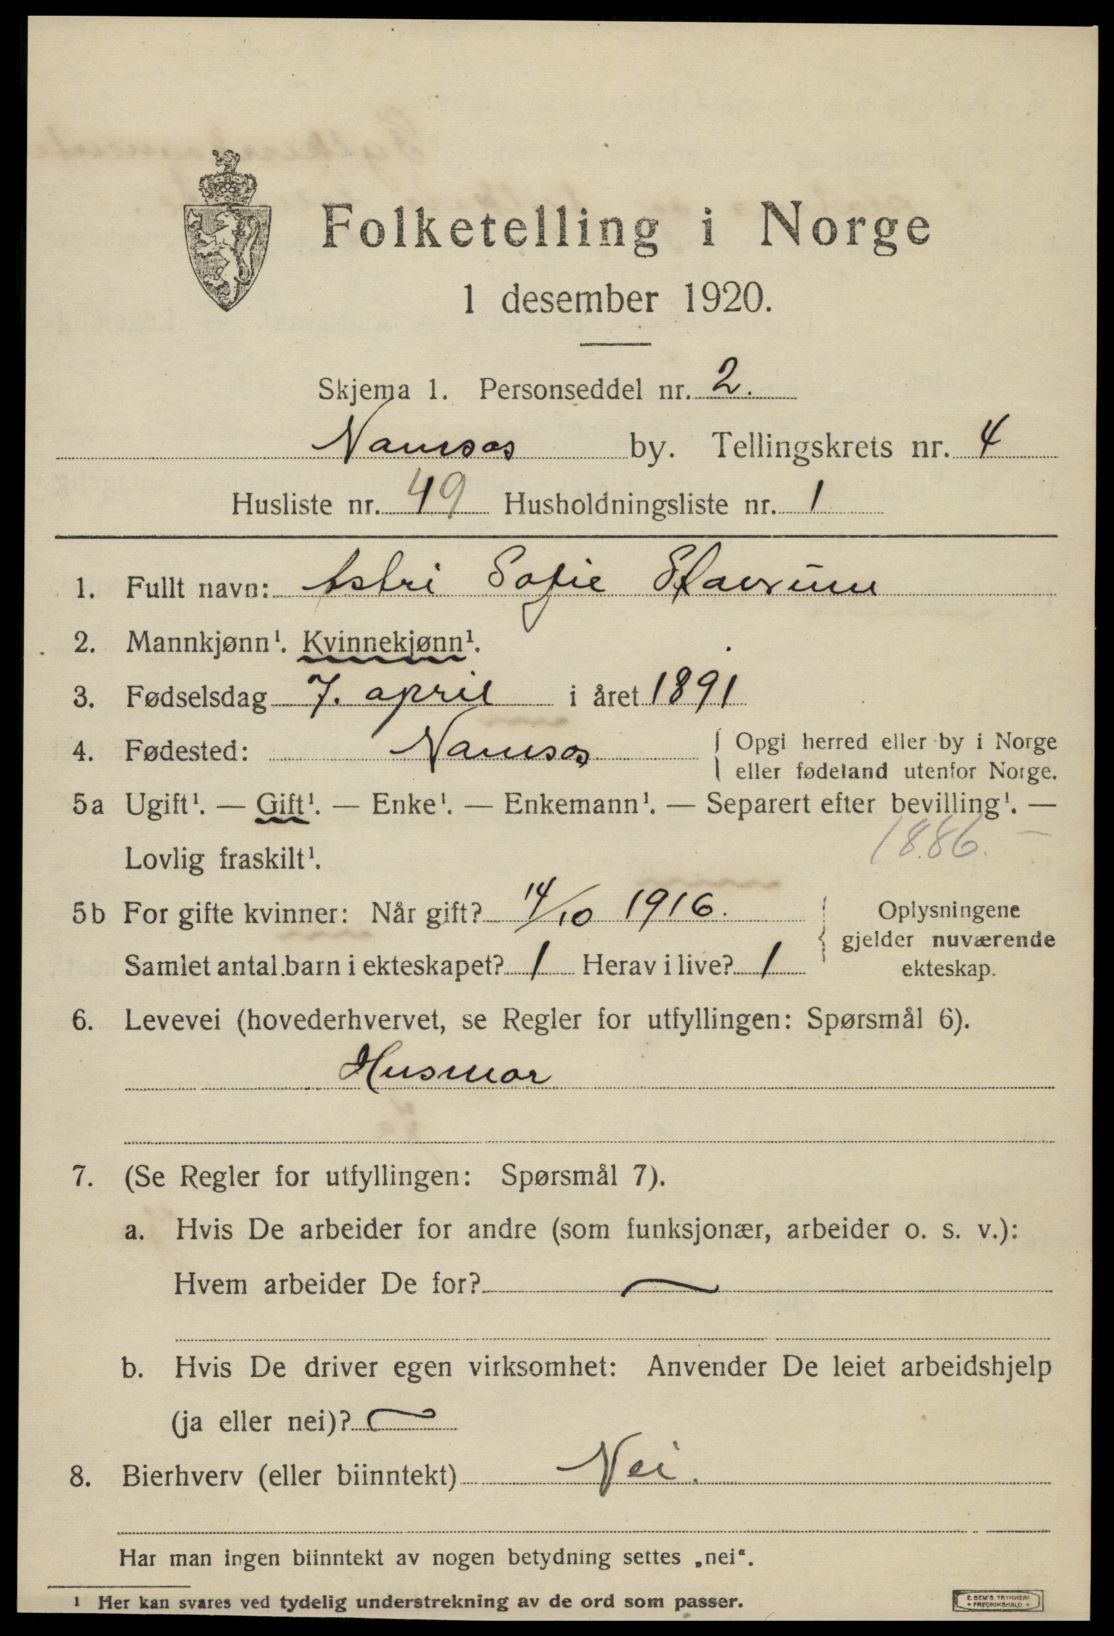 Folketelling i Norge
1 desember 1920.
Skjema 1. Personseddel nr. 2.
Namsos by. Tellingskrets nr. 4
Husliste nr. 49 Husholdningsliste nr. 1
1. Fullt navn: Astri Sofie
2. Mannkjønn¹. Kvinnekjønn¹.
3. Fødselsdag 7. april i året 1891
4. Fødested: Namsos { Opgi herred eller by i Norge
eller fødeland utenfor Norge.
5a Ugift¹. — Gift¹. — Enke¹. — Enkemann¹. — Separert efter bevilling¹. —
Lovlig fraskilt¹. 1886. —
5b For gifte kvinner: Når gift? 14/10 1916. { Oplysningene
gjelder nuværende
Samlet antal barn i ekteskapet? 1 Herav i live? 1 ekteskap.
6. Levevei (hovederhvervet, se Regler for utfyllingen: Spørsmål 6).
Husmor
7. (Se Regler for utfyllingen: Spørsmål 7).
a. Hvis De arbeider for andre (som funksjonær, arbeider o. s. v.):
Hvem arbeider De for? —
b. Hvis De driver egen virksomhet: Anvender De leiet arbeidshjelp
(ja eller nei)? —
8. Bierhverv (eller biinntekt) Nei.
Har man ingen biinntekt av nogen betydning settes „nei“.
¹ Her kan svares ved tydelig understrekning av de ord som passer.
E. SEM'S TRYKKERI
• FREDRIKSHALD •